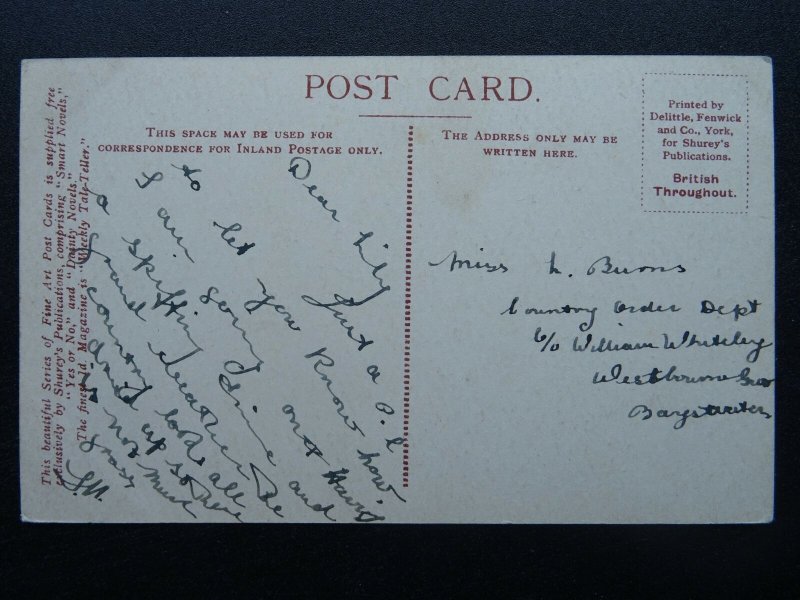 This beautiful Series of Fine Art Post Cards is supplied free
exclusively by Shurey's Publications, comprising "Smart Novels,"
"Yes or No," and "Dainty Novels."
The finest 1d. Magazine is "Weekly Tale-Teller."
POST CARD.
THIS SPACE MAY BE USED FOR
CORRESPONDENCE FOR INLAND POSTAGE ONLY.
THE ADDRESS ONLY MAY BE
WRITTEN HERE.
Printed by
Delittle, Fenwick
and Co., York,
for Shurey's
Publications.
British
Throughout.
Dear Lily
Just a P.C
to let you know how
I am having
a spiffing time and
grand weather the
country looks all
up so there
is not much
grass
Miss L. Burns
Country Order Dept
c/o William Whiteley
Westbourne Grove
Bayswater